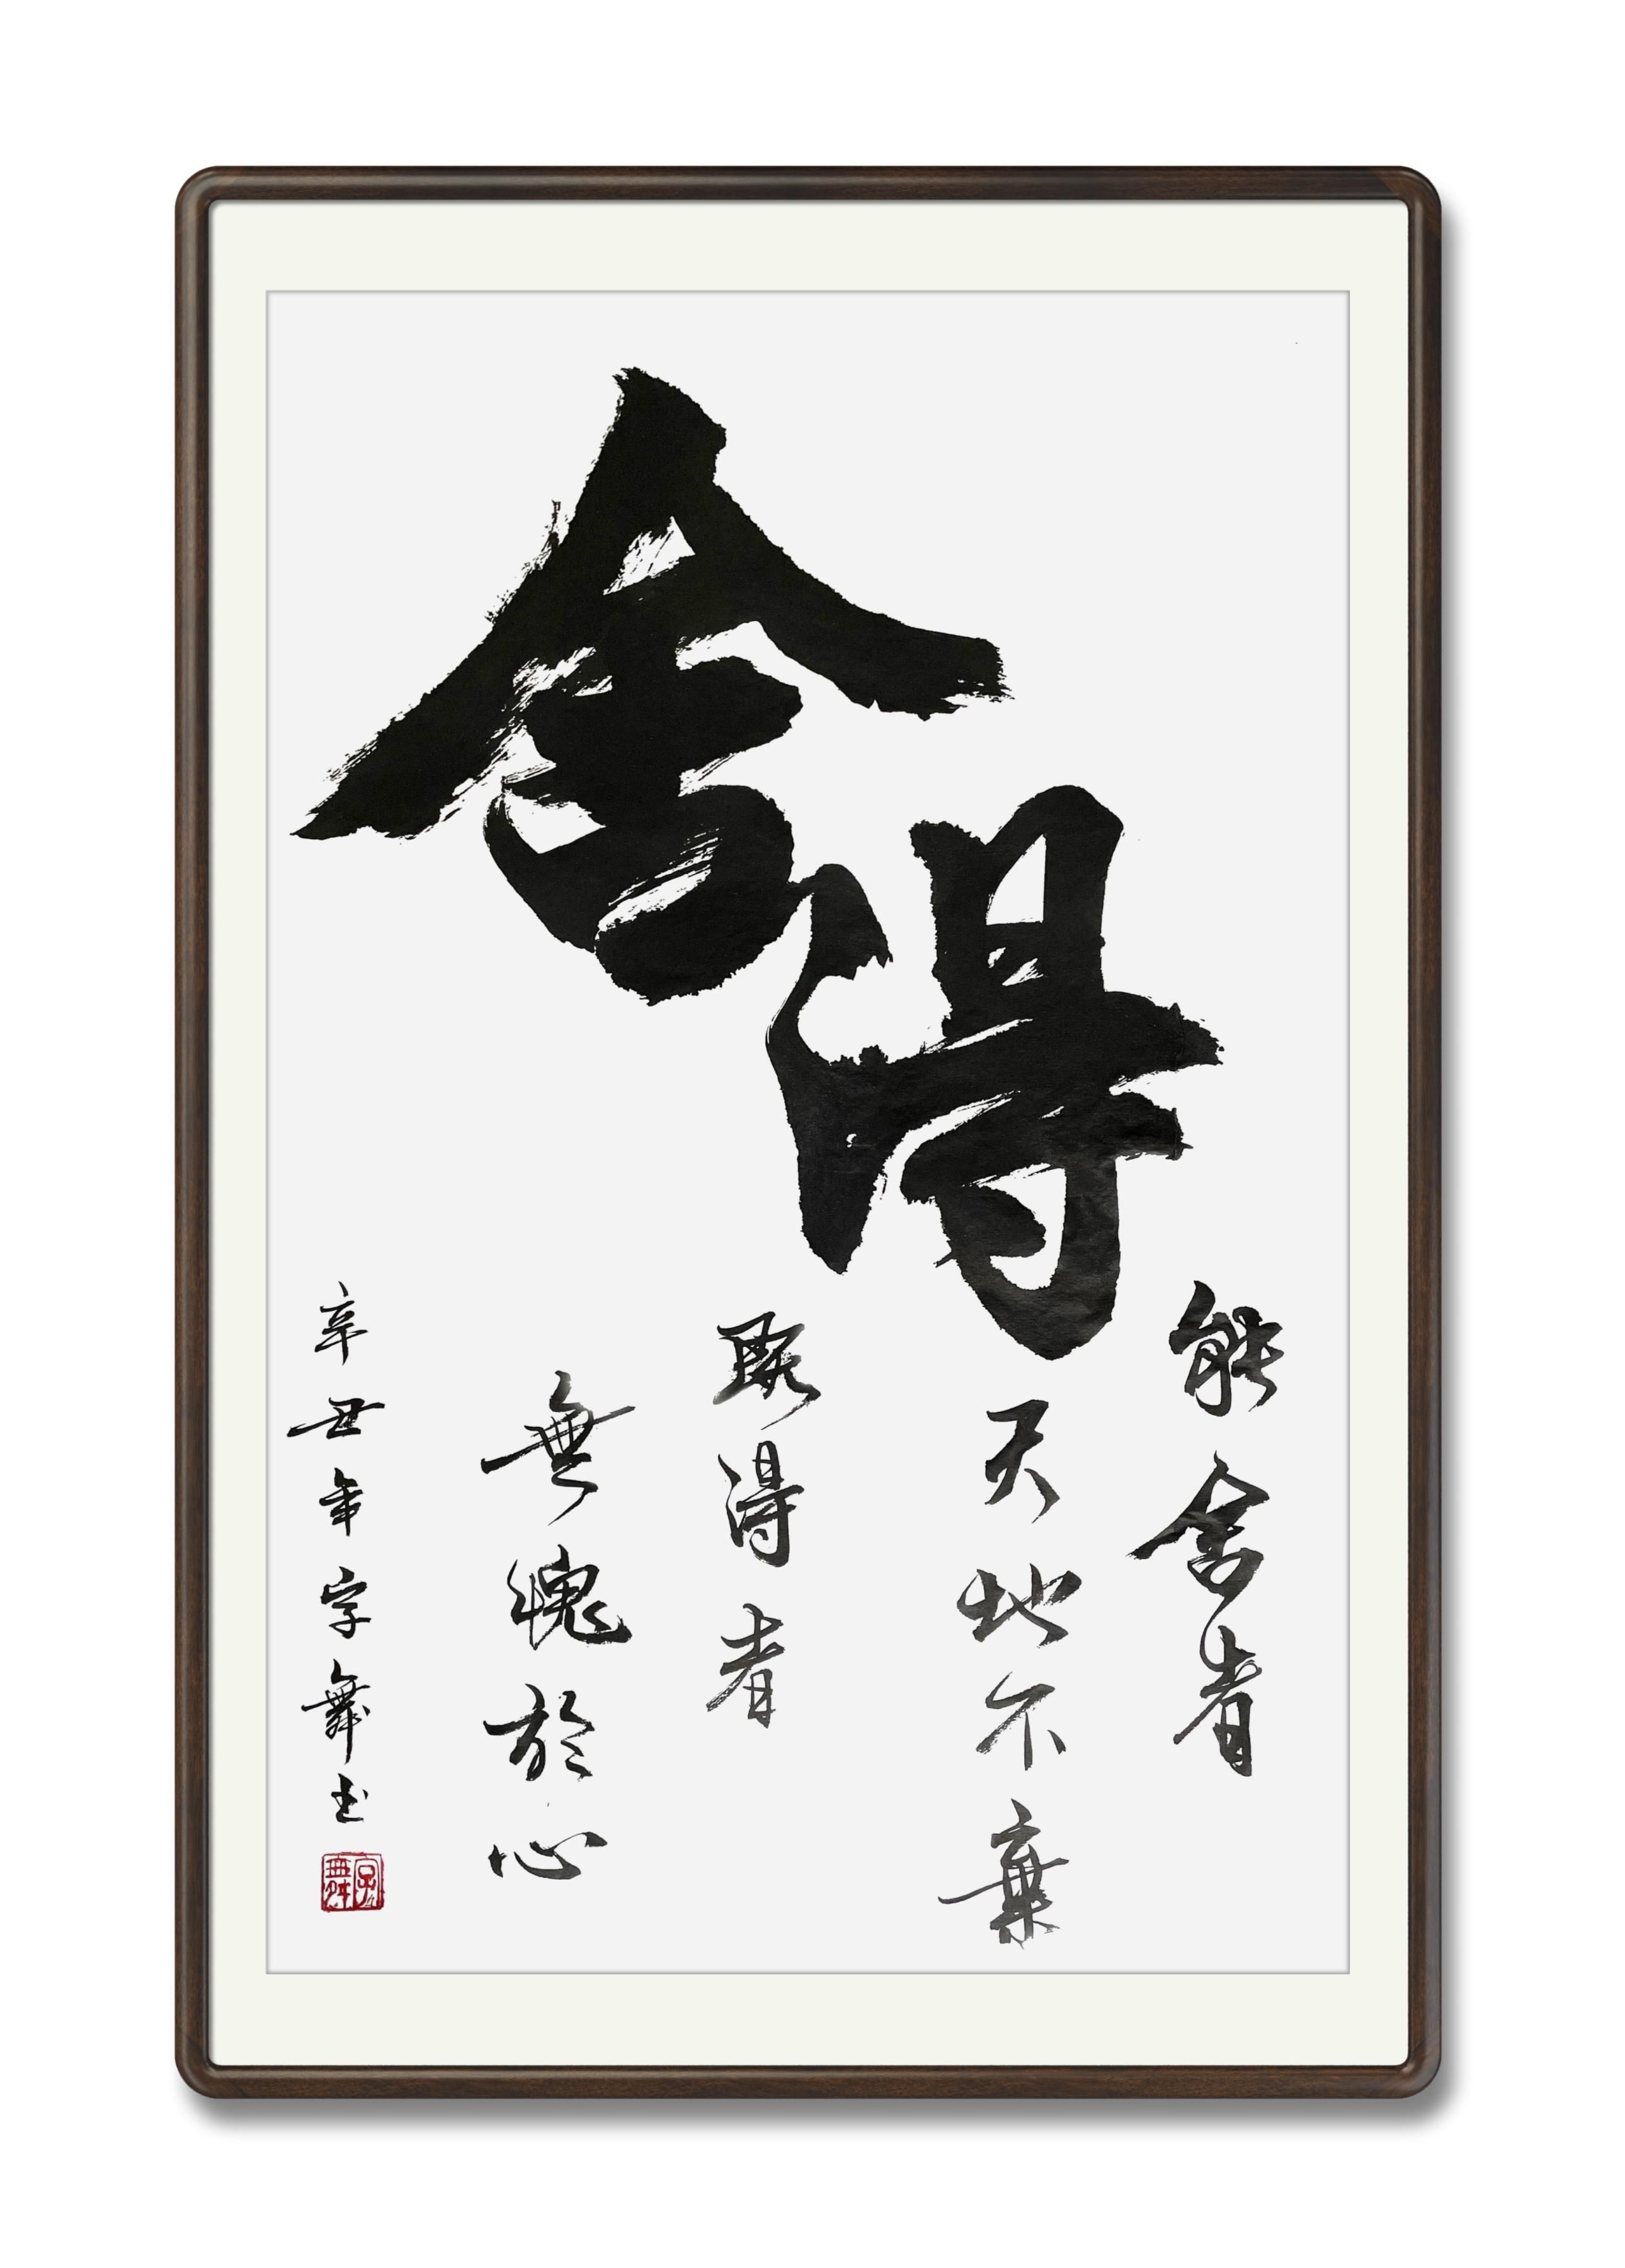 舍得
能舍者
天地不棄
既得者
無愧於心
辛丑年字舞书
字舞